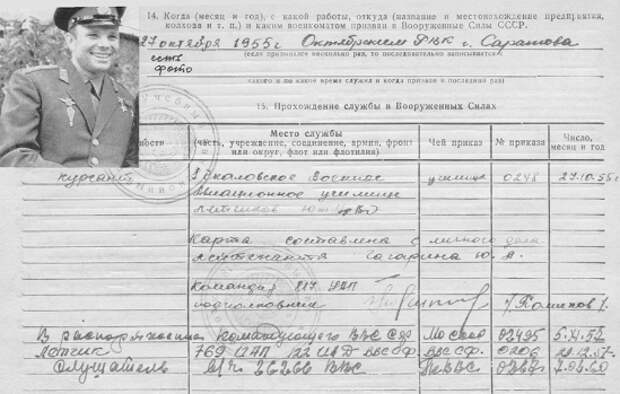 14. Когда (месяц и год), с какой работы, откуда (название и местонахождение предприятия,
колхоза и т. п.) и каким военкоматом призван в Вооруженные Силы СССР.
27 октября 1955 г Октябрьским РВК г. Саратова
(если призывался несколько раз, то последовательно записывается)
есть
фото
какого и по какое время служил и когда призван в последний раз)
15. Прохождение службы в Вооруженных Силах
ности
Место службы
(часть, учреждение, соединение, армия, фронт
или округ, флот или флотилия)
Чей приказ
№ приказа
Число,
месяц и год
курсант
Чкаловское Военное
училища
0248
27.10.55 г
Авиационное училище
летчиков
Карта составлена с личного дела
лейтенанта Гагарина Ю. А.
Командир 817
подполковник
В распоряжение командующего ВВС СФ
Москва
02495
Летчик
769 ИАП 122 ИАД ВВС СФ
ВВС СФ.
0206
Слушатель
в/ч 26266 ВВС